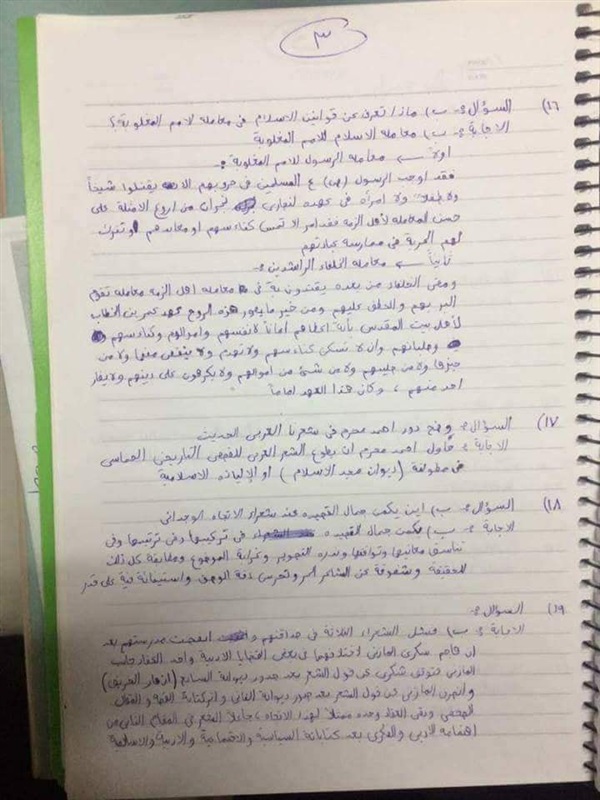 ٣
١٦) السؤال :- ب) ماذا تعرف عن قوانين الاسلام في معاملة الامم المغلوبة ؟
الاجابة :- ب) معاملة الاسلام للامم المغلوبة
اولاً ← معاملة الرسول للامم المغلوبة :-
فقد اوجب الرسول (ص) ع المسلمين في حروبهم الا يقتلوا شيخاً
ولا طفلا ولا امرأة في عهده لنصارى نجران من اروع الامثلة على
حسن المعاملة لأهل الذمة فقد امر الا تمس كنائسهم او معابدهم او تترك
لهم الحرية في ممارسة عبادتهم
ثانياً ← معاملة الخلفاء الراشدين :-
ومضى الخلفاء من بعده يقتدون به في معاملة اهل الذمة معاملة تقوم
البر بهم والعطف عليهم ومن خير ما يصور هذه الروح عهد عمر بن الخطاب
لأهل بيت المقدس بأنه اعطاهم أماناً لانفسهم واموالهم وكنائسهم
وصلبانهم وأن لا تسكن كنائسهم ولا تهدم ولا ينتقص منها ولا من
حيزها ولا من صليبهم ولا من شئ من اموالهم ولا يكرهون على دينهم ولا يضار
احد منهم ، وكان هذا العهد اماماً
١٧) السؤال :- وضح دور احمد محرم في شعرنا العربي الحديث
الاجابة :- حاول احمد محرم ان يطوع الشعر العربي للقصص التاريخي الحماسي
في مطولة ( ديوان مجد الاسلام ) أو الإلياذة الاسلامية
١٨) السؤال :- ب) اين يكمن جمال القصيدة عند شعراء الاتجاه الوجداني
الاجابة :- ب) يكمن جمال القصيدة في تركيبها وفي ترتيبها وفي
تناسق معانيها وتوافقها وندرة التصوير وغرابة الموضوع ومطابقة كل ذلك
للحقيقة وشفوفة عن الشاعر الحر وتحرى دقة الوصف واستيفائه فيه على قدر
١٩) السؤال :-
الاجابة :- ب) فشل الشعراء الثلاثة في صداقتهم و انفصمت مدرستهم بعد
ان هاجم شكرى المازنى لاختلافهما في بعض القضايا الادبية واخذ العقاد جانب
المازنى فتوقف شكرى عن قول الشعر بعد صدور ديوانه السابع (ازهار الخريف)
وانصرف المازنى عن قول الشعر بعد صدور ديوانه الثانى والى كتابة القصة والمقال
الصحفى وبقى العقاد وحده ممثلا لهذا الاتجاه ، جاعلا الشعر في المقام الثانى من
اهتمامه الادبى والفكرى بعد كتاباته السياسية والاجتماعية والادبية والاسلامية